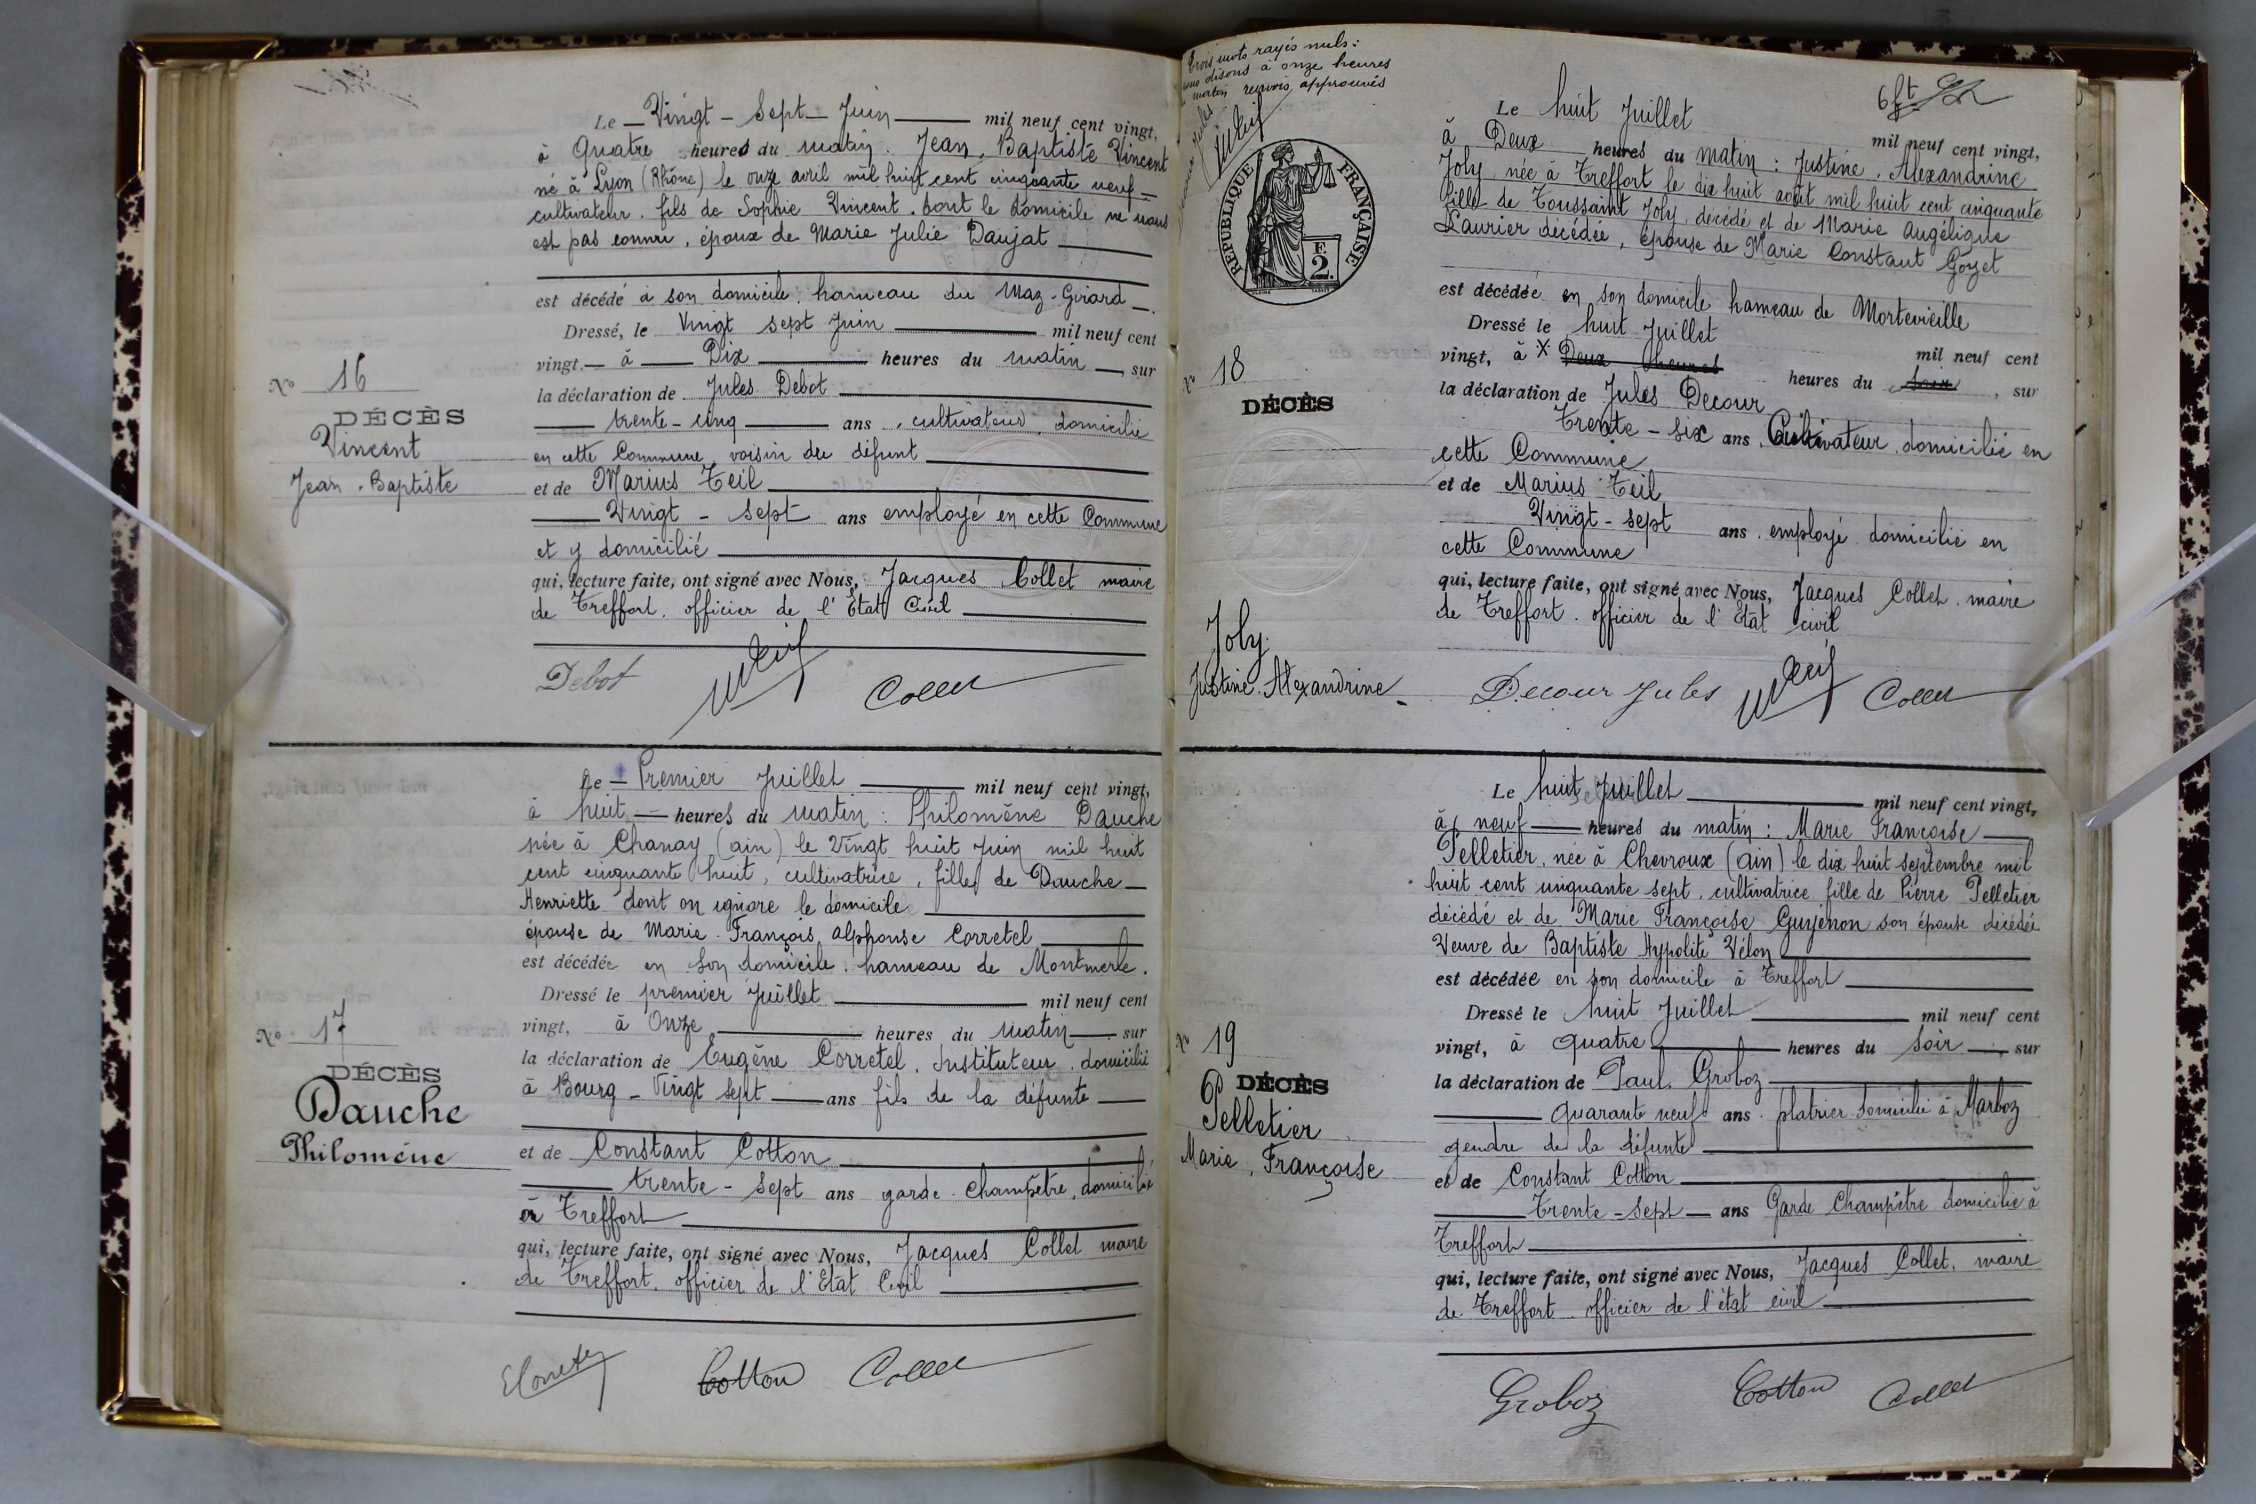 Le Vingt-Sept Juin mil neuf cent vingt,
à Quatre heures du matin. Jean, Baptiste Vincent
né à Lyon (Rhône) le onze avril mil huit cent cinquante neuf
cultivateur. fils de Sophie Vincent. dont le domicile ne nous
est pas connu, époux de Marie Julie Daujat
est décédé à son domicile, hameau du Maz-Girard
Dressé, le Vingt sept Juin mil neuf cent
vingt à Dix heures du matin, sur
la déclaration de Jules Debot
trente-cinq ans, cultivateur, domicilié
en cette Commune, voisin du défunt
et de Marius Teil
Vingt-sept ans employé en cette Commune
et y domicilié
qui, lecture faite, ont signé avec Nous, Jacques Collet maire
de Treffort. officier de l'Etat Civil
Nº 16
DÉCÈS
Vincent
Jean, Baptiste
Debot Collet
Le Premier Juillet mil neuf cent vingt,
à huit heures du matin: Philomène Dauche
née à Chanay (ain) le Vingt huit Juin mil huit
cent cinquante huit, cultivatrice, fille de Dauche
Henriette dont on ignore le domicile
épouse de Marie-François Alphonse Corretel
est décédée en son domicile, hameau de Montmerle.
Dressé le premier Juillet mil neuf cent
vingt, à Onze heures du matin sur
la déclaration de Eugène Corretel, Instituteur, domicilié
à Bourg-Vingt sept ans fils de la défunte
et de Constant Cotton
trente-sept ans garde-champêtre, domicilié
à Treffort
qui, lecture faite, ont signé avec Nous, Jacques Collet maire
de Treffort. officier de l'Etat Civil
Nº 17
DÉCÈS
Dauche
Philomène
Cotton Collet
Trois mots rayés nuls:
nous disons à onze heures
du matin renvois approuvés
RÉPUBLIQUE FRANÇAISE
E
2.
Le huit Juillet mil neuf cent vingt,
à Deux heures du matin: Justine, Alexandrine
Joly, née à Treffort le dix huit août mil huit cent cinquante
fille de Toussaint Joly, décédé et de Marie Angélique
Laurier décédée, épouse de Marie Constant Goyet
est décédée en son domicile hameau de Mortevieille
Dressé le huit Juillet mil neuf cent
vingt, à X Deux heures heures du soir, sur
la déclaration de Jules Decour
Trente-six ans, Cultivateur, domicilié en
cette Commune
et de Marius Teil
Vingt-sept ans. employé domicilié en
cette Commune
qui, lecture faite, ont signé avec Nous, Jacques Collet, maire
de Treffort. officier de l'Etat civil
Nº 18
DÉCÈS
Joly
Justine, Alexandrine
Decour Jules Collet
Le huit Juillet mil neuf cent vingt,
à neuf heures du matin: Marie Françoise
Pelletier, née à Chevroux (ain) le dix huit septembre mil
huit cent cinquante sept, cultivatrice fille de Pierre Pelletier
décédé et de Marie Françoise Guyénon son épouse décédée
Veuve de Baptiste Hypolite Vélon
est décédée en son domicile à Treffort
Dressé le huit Juillet mil neuf cent
vingt, à quatre heures du soir sur
la déclaration de Paul Groboz
quarante neuf ans. platrier domicilié à Marboz
gendre de la défunte
et de Constant Cotton
Trente-sept ans Garde Champêtre domicilié à
Treffort
qui, lecture faite, ont signé avec Nous, Jacques Collet, maire
de Treffort officier de l'état civil
Nº 19
DÉCÈS
Pelletier
Marie, Françoise
Groboz Cotton Collet